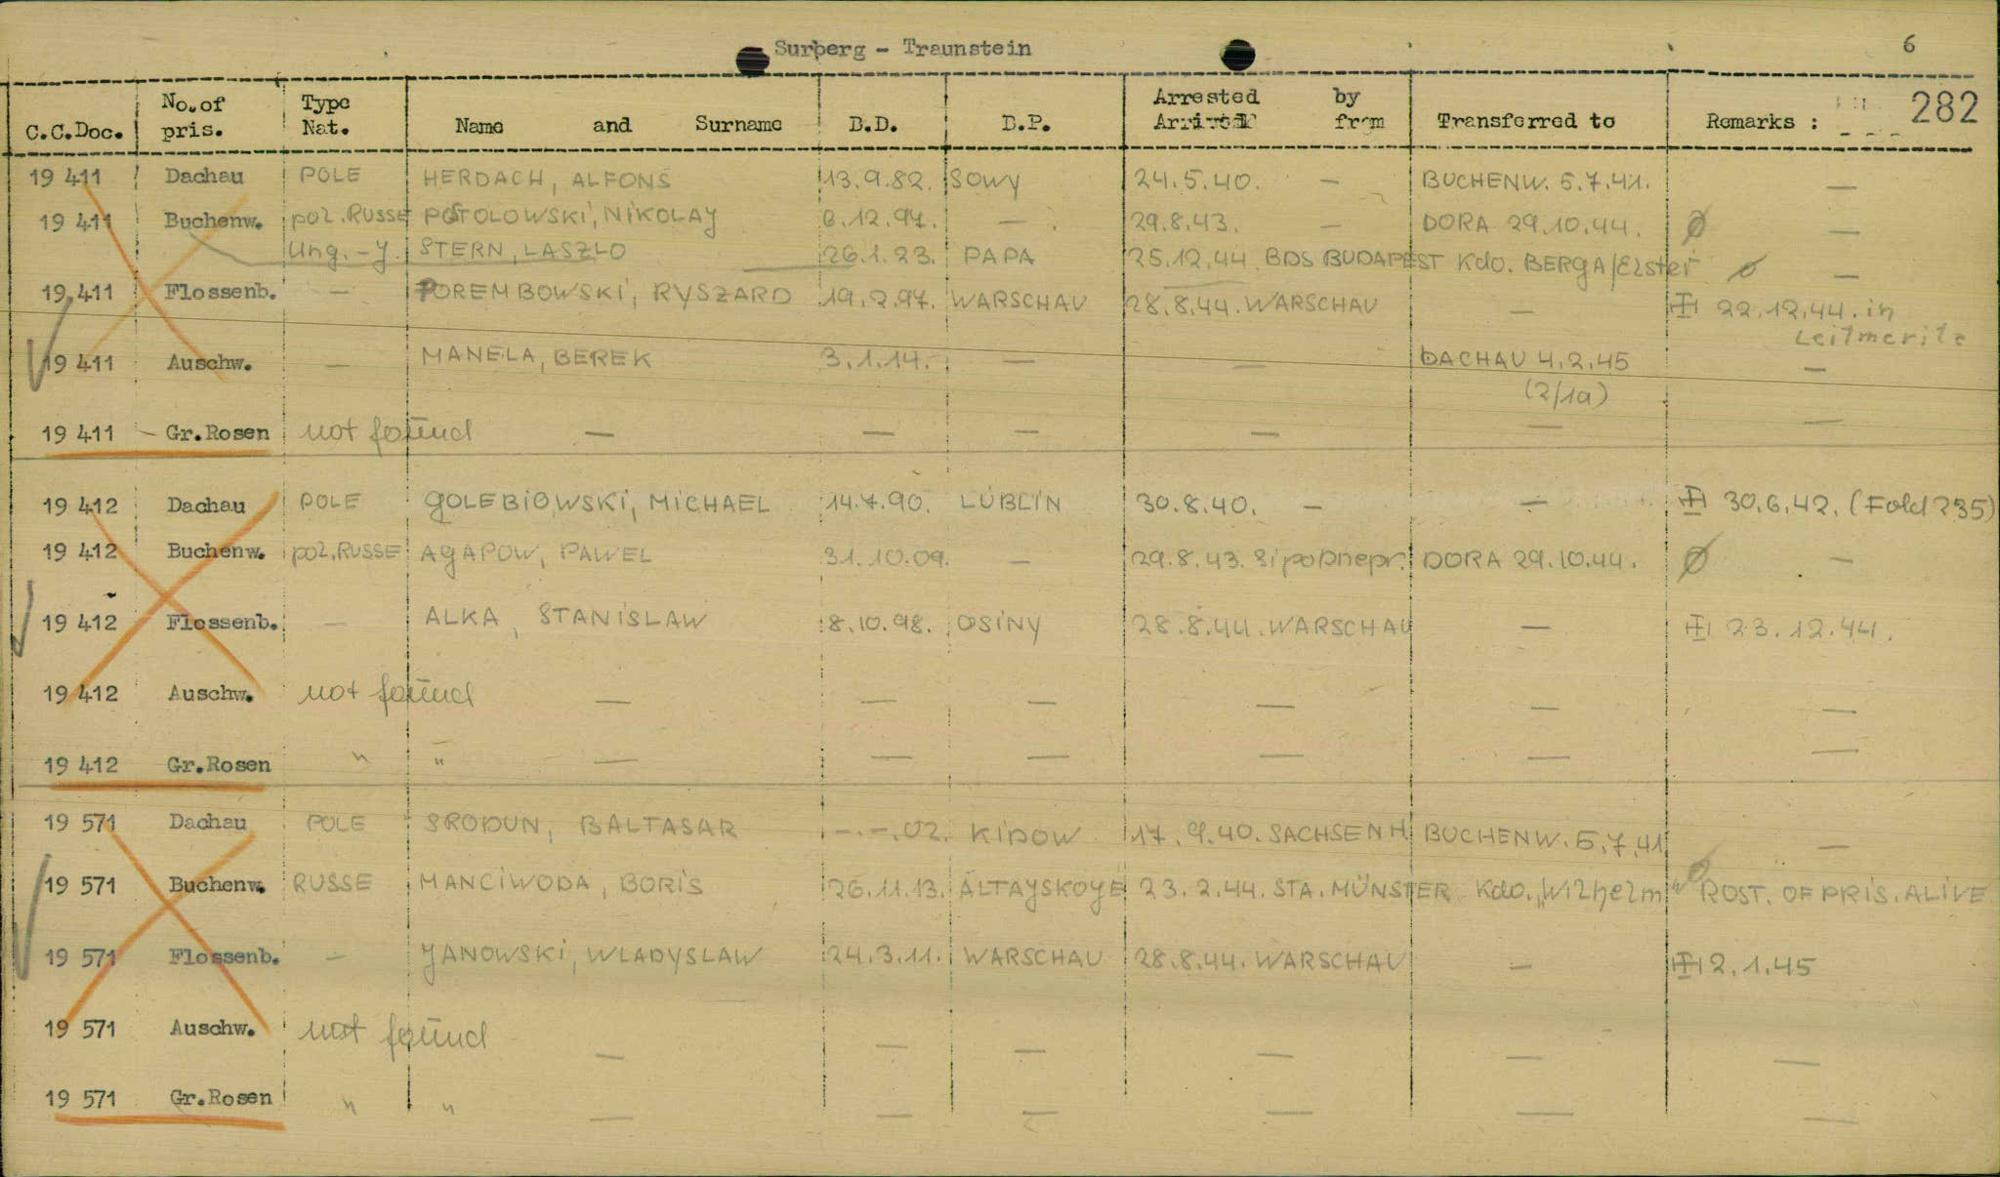 Surberg - Traunstein
6
282
C.C.Doc. No.of pris. Type Nat. Name and Surname B.D. B.P. Arrested by Arrived from Transferred to Remarks :
19 411 Dachau POLE HERDACH, ALFONS 13.9.82. SOWY 24.5.40. — BUCHENW. 5.7.41. —
19 411 Buchenw. pol.RUSSE POSTOLOWSKI, NIKOLAY 6.12.97. — 29.8.43. — DORA 29.10.44. Ø —
Ung.-J. STERN, LASZLO 26.1.23. PAPA 25.12.44 BDS BUDAPEST Kdo. BERGA/Elster Ø —
19 411 Flossenb. — POREMBOWSKI, RYSZARD 19.2.97. WARSCHAU 28.8.44. WARSCHAU — 22.12.44. in
Leitmeritz
19 411 Auschw. — MANELA, BEREK 3.1.14. — — DACHAU 4.2.45 —
(2/1a)
19 411 - Gr.Rosen not found — — — — — —
19 412 Dachau POLE GOLEBIOWSKI, MICHAEL 14.7.90. LUBLIN 30.8.40. — — 30.6.42. (Fold 235)
19 412 Buchenw. pol.RUSSE AGAPOW, PAWEL 31.10.09. — 29.8.43. Sipo Dnepr. DORA 29.10.44. Ø —
19 412 Flossenb. — ALKA, STANISLAW 8.10.98. OSINY 28.8.44. WARSCHAU — 23.12.44.
19 412 Auschw. not found — — — — — —
19 412 Gr.Rosen " " — — — — — —
19 571 Dachau POLE SRODUN, BALTASAR —.—.02. KIDOW 17.9.40. SACHSENH. BUCHENW. 5.7.41 —
19 571 Buchenw. RUSSE MANCIWODA, BORIS 26.11.13. ALTAYSKOYE 23.2.44. STA. MÜNSTER Kdo. „Wilhelm" Ø ROST. OF PRIS. ALIVE
19 571 Flossenb. — JANOWSKI, WLADYSLAW 24.3.11. WARSCHAU 28.8.44. WARSCHAU — 2.1.45
19 571 Auschw. not found — — — — — —
19 571 Gr.Rosen " " — — — — — —